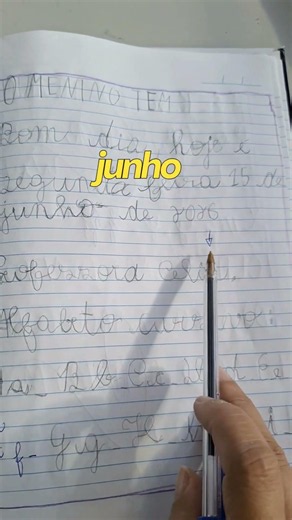 O MENINO TEM
Bom dia hoje é
segunda feira 15 de
junho
junho de 2026
Professora
Alfabeto cursivo:
Aa Bb Cc Dd Ee
Ff Gg H